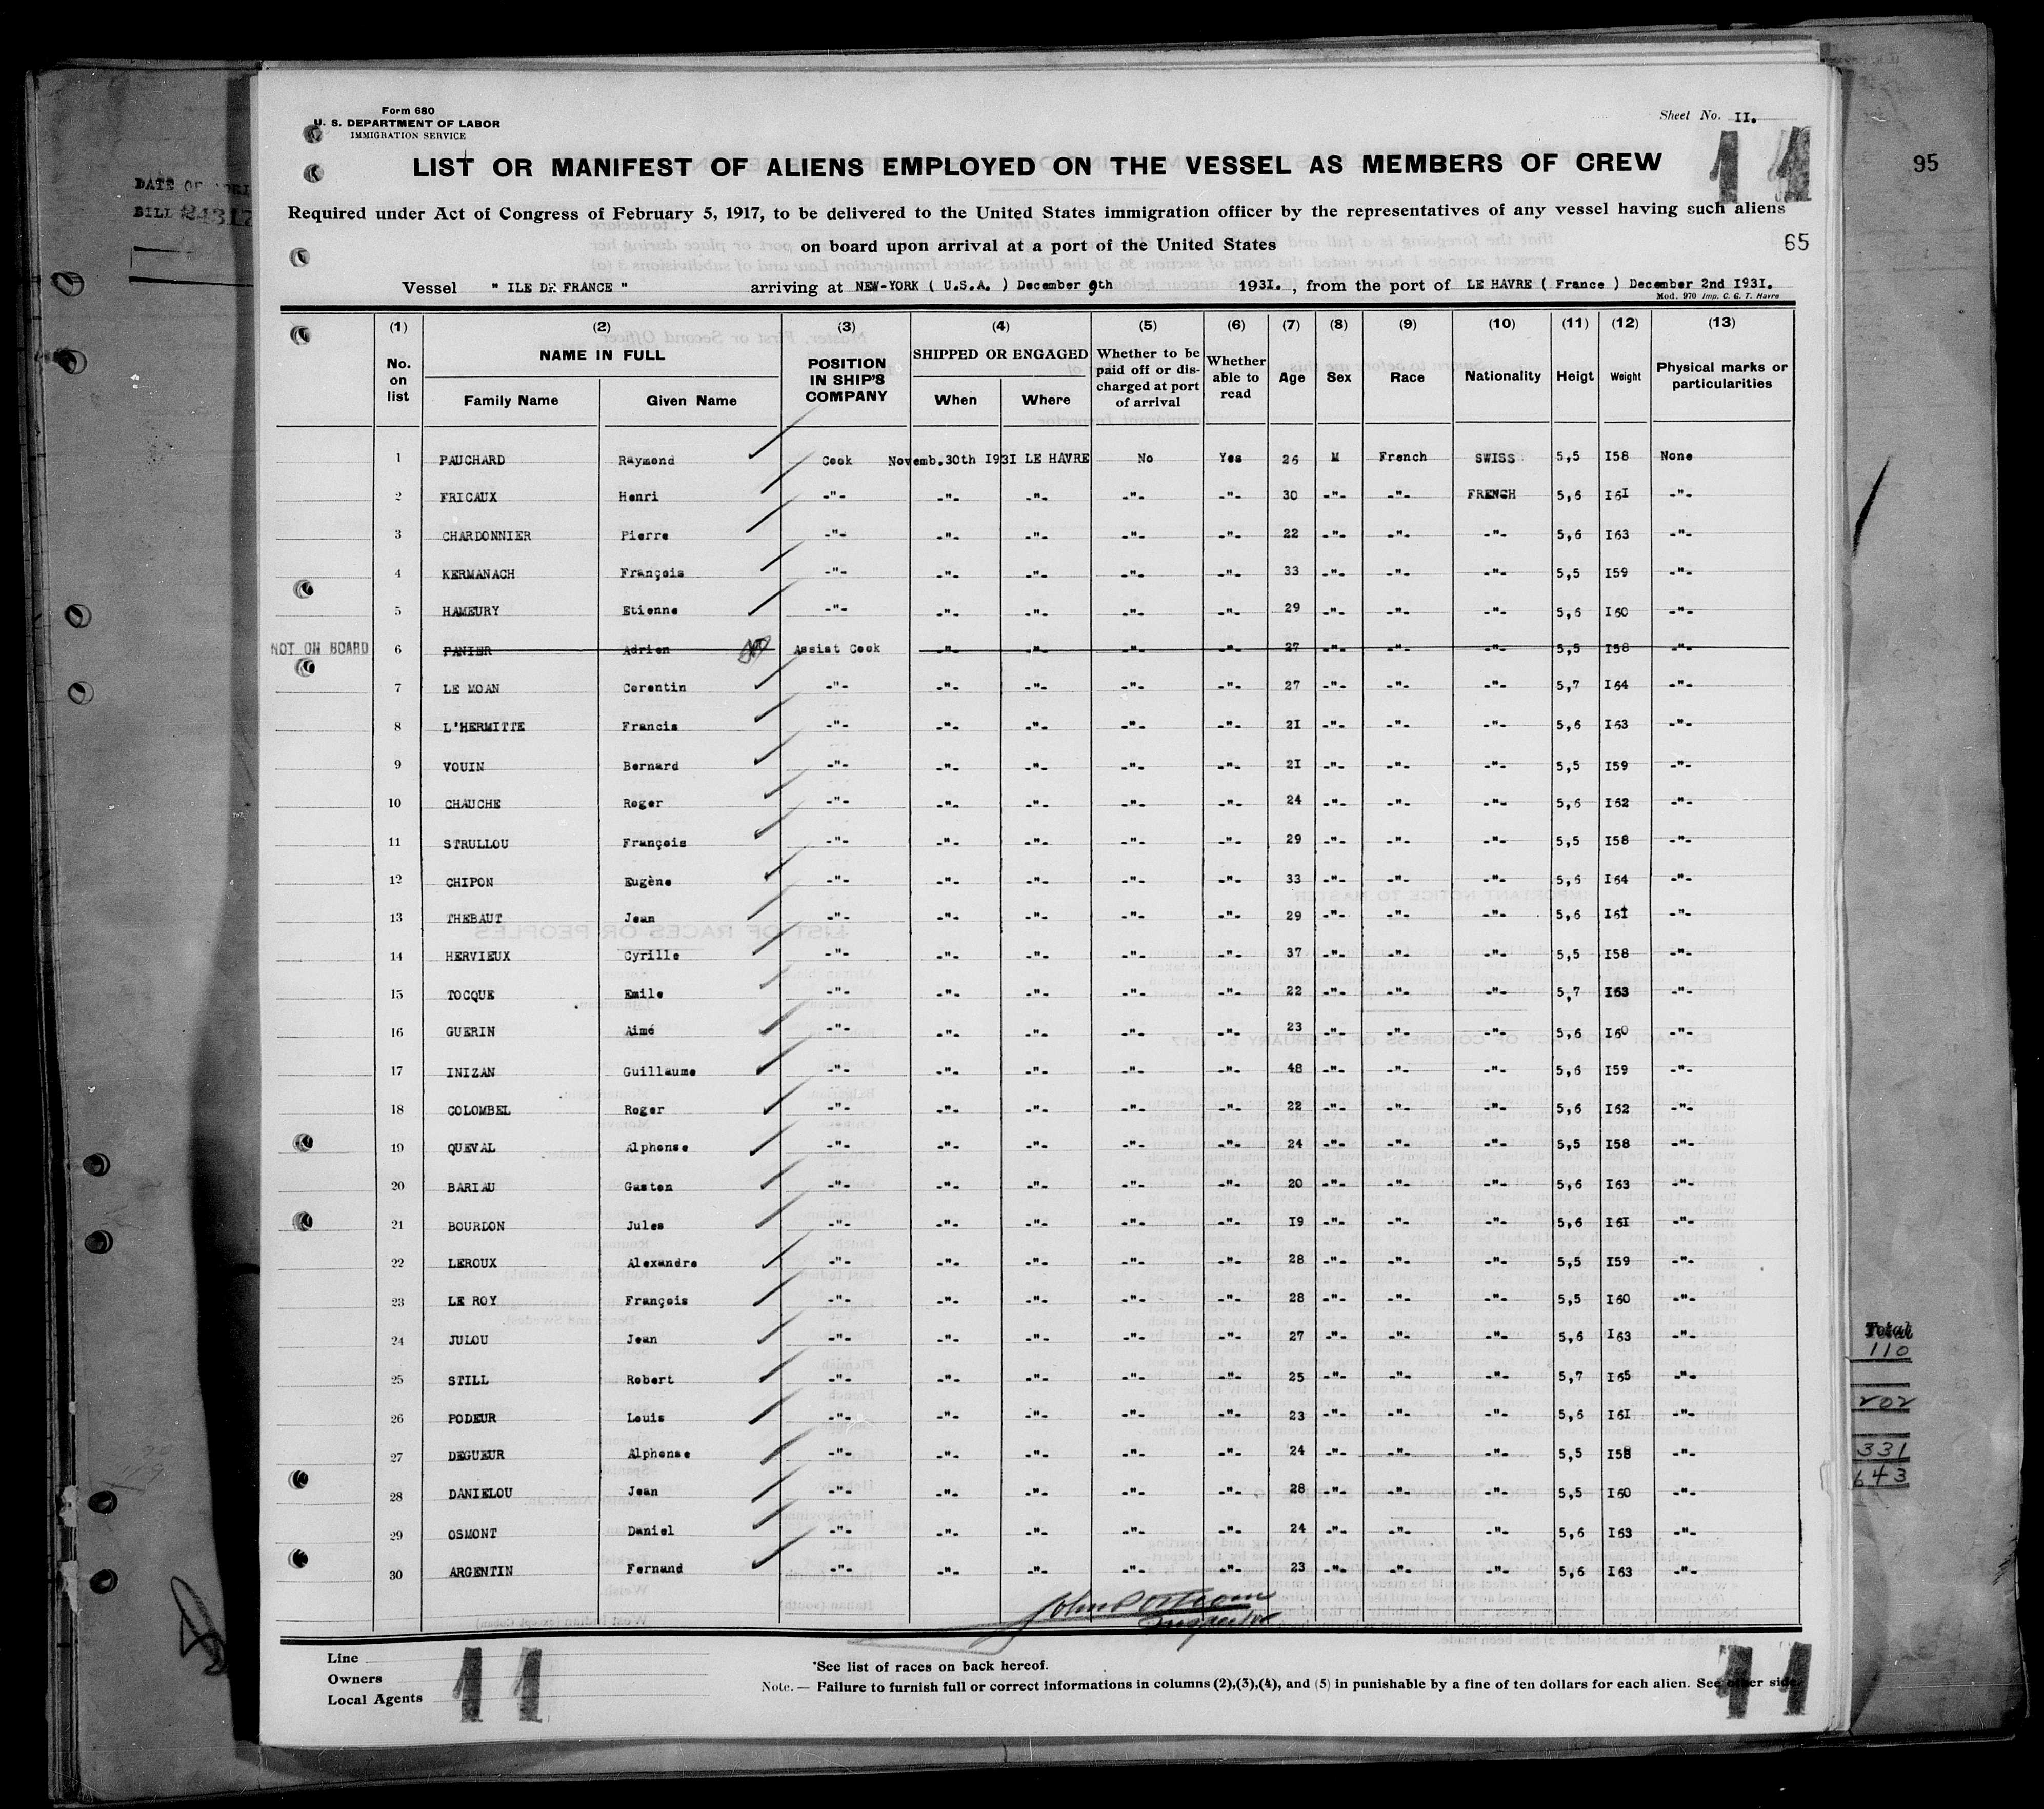 Form 680
U. S. DEPARTMENT OF LABOR
IMMIGRATION SERVICE
Sheet No. II.
11
95
LIST OR MANIFEST OF ALIENS EMPLOYED ON THE VESSEL AS MEMBERS OF CREW
DATE OF
BILL 24317
Required under Act of Congress of February 5, 1917, to be delivered to the United States immigration officer by the representatives of any vessel having such aliens
on board upon arrival at a port of the United States
65
Vessel " ILE DE FRANCE " arriving at NEW-YORK ( U.S.A. ) December 9th 1931. , from the port of LE HAVRE ( France ) December 2nd I93I.
Mod. 970 Imp. C. G. T. Havre
(1) (2) (3) (4) (5) (6) (7) (8) (9) (10) (11) (12) (13)
No. on list NAME IN FULL Family Name Given Name POSITION IN SHIP'S COMPANY SHIPPED OR ENGAGED When Where Whether to be paid off or discharged at port of arrival Whether able to read Age Sex Race Nationality Heigt Weight Physical marks or particularities
1 PAUCHARD Raymond Cook Novemb.30th I93I LE HAVRE No Yes 26 M French SWISS 5,5 I58 None
2 FRICAUX Henri -"- -"- -"- -"- -"- 30 -"- -"- FRENCH 5,6 I6I -"-
3 CHARDONNIER Pierre -"- -"- -"- -"- -"- 22 -"- -"- -"- 5,6 I63 -"-
4 KERMANACH François -"- -"- -"- -"- -"- 33 -"- -"- -"- 5,5 I59 -"-
5 HAMEURY Etienne -"- -"- -"- -"- -"- 29 -"- -"- -"- 5,6 I60 -"-
NOT ON BOARD 6 PANIER Adrien Assist Cook -"- -"- -"- -"- 27 -"- -"- -"- 5,5 I58 -"-
7 LE MOAN Corentin -"- -"- -"- -"- -"- 27 -"- -"- -"- 5,7 I64 -"-
8 L'HERMITTE Francis -"- -"- -"- -"- -"- 2I -"- -"- -"- 5,6 I63 -"-
9 VOUIN Bernard -"- -"- -"- -"- -"- 2I -"- -"- -"- 5,5 I59 -"-
10 CHAUCHE Roger -"- -"- -"- -"- -"- 24 -"- -"- -"- 5,6 I62 -"-
11 STRULLOU François -"- -"- -"- -"- -"- 29 -"- -"- -"- 5,5 I58 -"-
12 CHIPON Eugène -"- -"- -"- -"- -"- 33 -"- -"- -"- 5,6 I64 -"-
13 THEBAUT Jean -"- -"- -"- -"- -"- 29 -"- -"- -"- 5,6 I6I -"-
14 HERVIEUX Cyrille -"- -"- -"- -"- -"- 37 -"- -"- -"- 5,5 I58 -"-
15 TOCQUE Emile -"- -"- -"- -"- -"- 22 -"- -"- -"- 5,7 I63 -"-
16 GUERIN Aimé -"- -"- -"- -"- -"- 23 -"- -"- -"- 5,6 I60 -"-
17 INIZAN Guillaume -"- -"- -"- -"- -"- 48 -"- -"- -"- 5,6 I59 -"-
18 COLOMBEL Roger -"- -"- -"- -"- -"- 22 -"- -"- -"- 5,6 I62 -"-
19 QUEVAL Alphonse -"- -"- -"- -"- -"- 24 -"- -"- -"- 5,5 I58 -"-
20 BARIAU Gaston -"- -"- -"- -"- -"- 20 -"- -"- -"- 5,6 I63 -"-
21 BOURDON Jules -"- -"- -"- -"- -"- I9 -"- -"- -"- 5,6 I6I -"-
22 LEROUX Alexandre -"- -"- -"- -"- -"- 28 -"- -"- -"- 5,5 I59 -"-
23 LE ROY François -"- -"- -"- -"- -"- 28 -"- -"- -"- 5,5 I60 -"-
24 JULOU Jean -"- -"- -"- -"- -"- 27 -"- -"- -"- 5,6 I63 -"-
25 STILL Robert -"- -"- -"- -"- -"- 25 -"- -"- -"- 5,7 I65 -"-
26 PODEUR Louis -"- -"- -"- -"- -"- 23 -"- -"- -"- 5,6 I6I -"-
27 DEGUEUR Alphonse -"- -"- -"- -"- -"- 24 -"- -"- -"- 5,5 I58 -"-
28 DANIELOU Jean -"- -"- -"- -"- -"- 28 -"- -"- -"- 5,5 I60 -"-
29 OSMONT Daniel -"- -"- -"- -"- -"- 24 -"- -"- -"- 5,6 I63 -"-
30 ARGENTIN Fernand -"- -"- -"- -"- -"- 23 -"- -"- -"- 5,6 I63 -"-
Total
110
202
331
643
Inspector
Line
Owners
Local Agents
11
*See list of races on back hereof.
Note. — Failure to furnish full or correct informations in columns (2),(3),(4), and (5) in punishable by a fine of ten dollars for each alien. See other side.
11